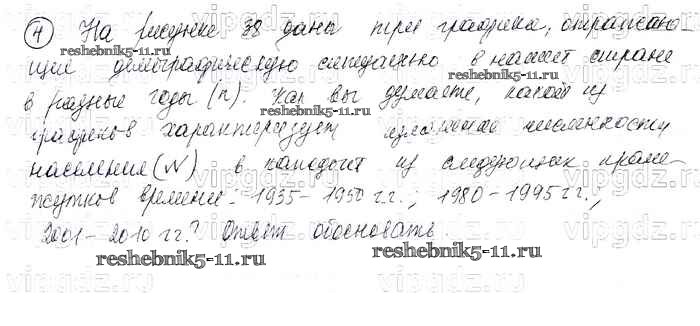 ④ На рисунке 38 даны три графика, отражаю
щие демографическую ситуацию в нашей стране
в разные годы (n). Как вы думаете, какой из
графиков характеризует изменение численности
населения (N) в каждый из следующих проме-
жутков времени: 1935-1950 г.г.; 1980-1995 г.г.;
2001-2010 г.г.? Ответ обосновать.
reshebnik5-11.ru
reshebnik5-11.ru
reshebnik5-11.ru
reshebnik5-11.ru
vipgdz.ru